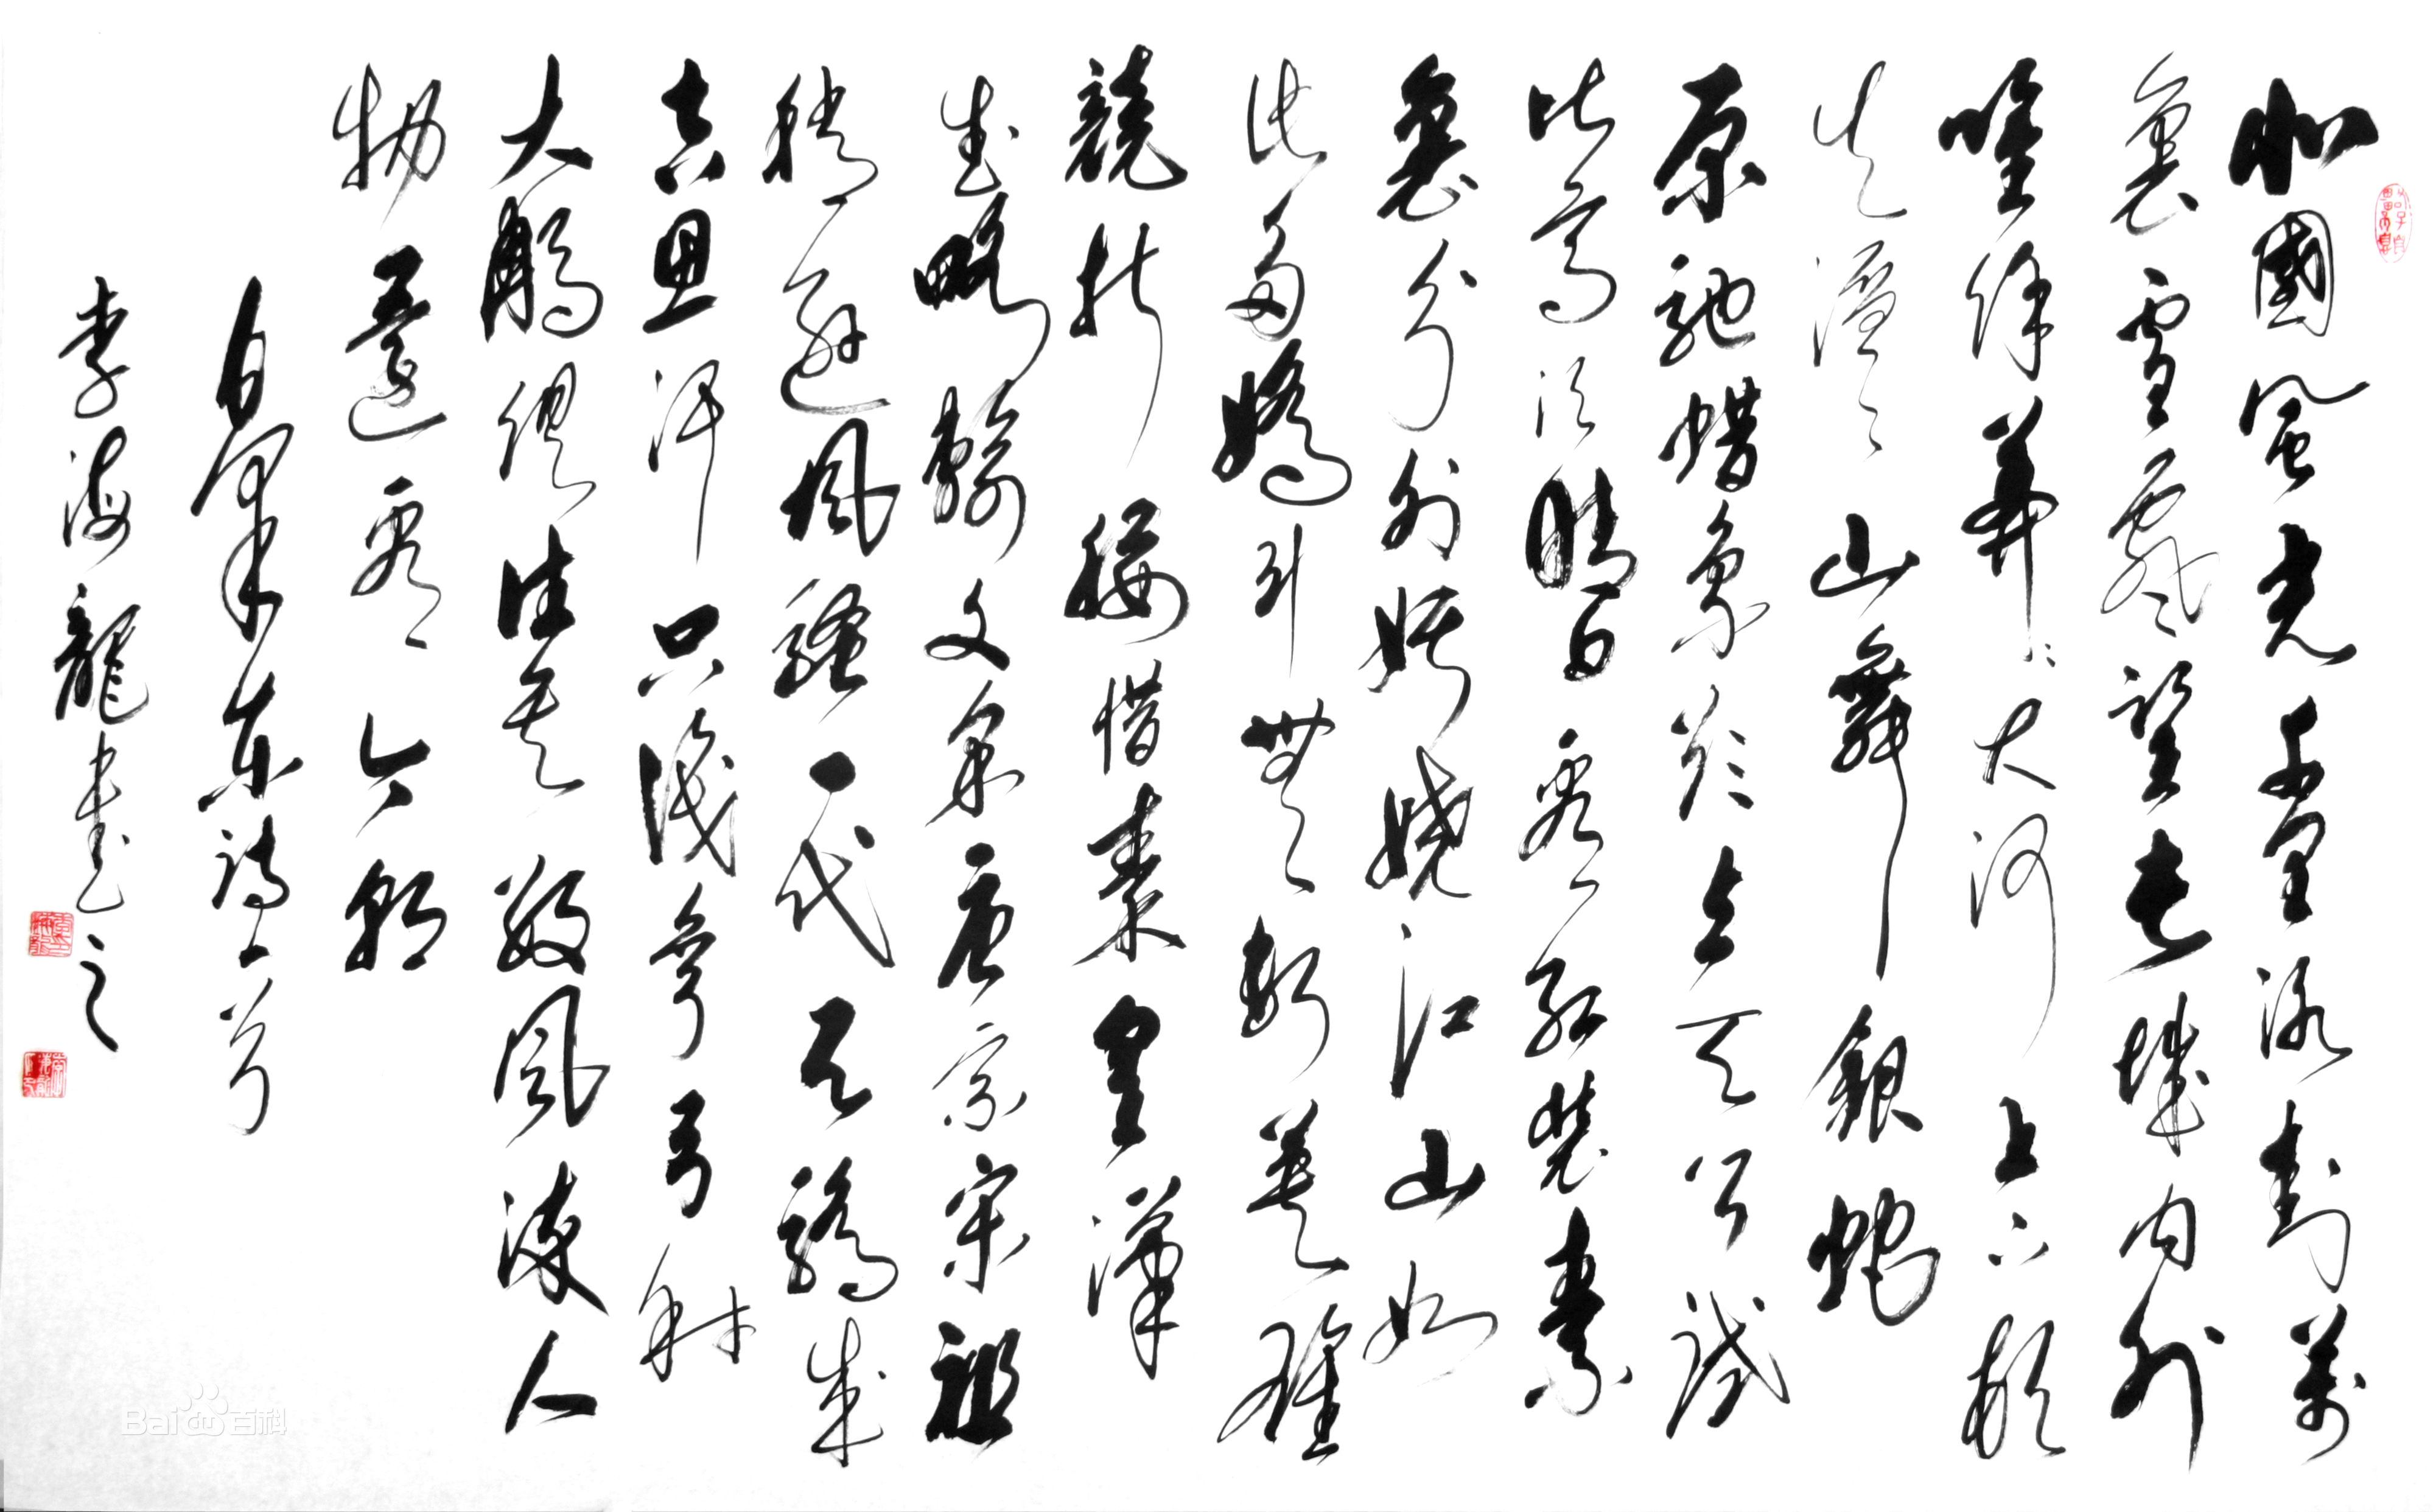 北國風光千里冰封萬
里雪飄望長城内外
唯餘莽莽大河上下頓
失滔滔山舞銀蛇
原馳蜡象欲与天公試
比高須晴日看紅装素
裹分外妖嬈江山如
此多嬌引無數英雄
競折腰惜秦皇漢
武略輸文采唐宗宋祖
稍遜風騷一代天驕成
吉思汗只識彎弓射
大鵰俱往矣數風流人
物還看今朝
澤東詩一首
李海龍書之
Baidu百科